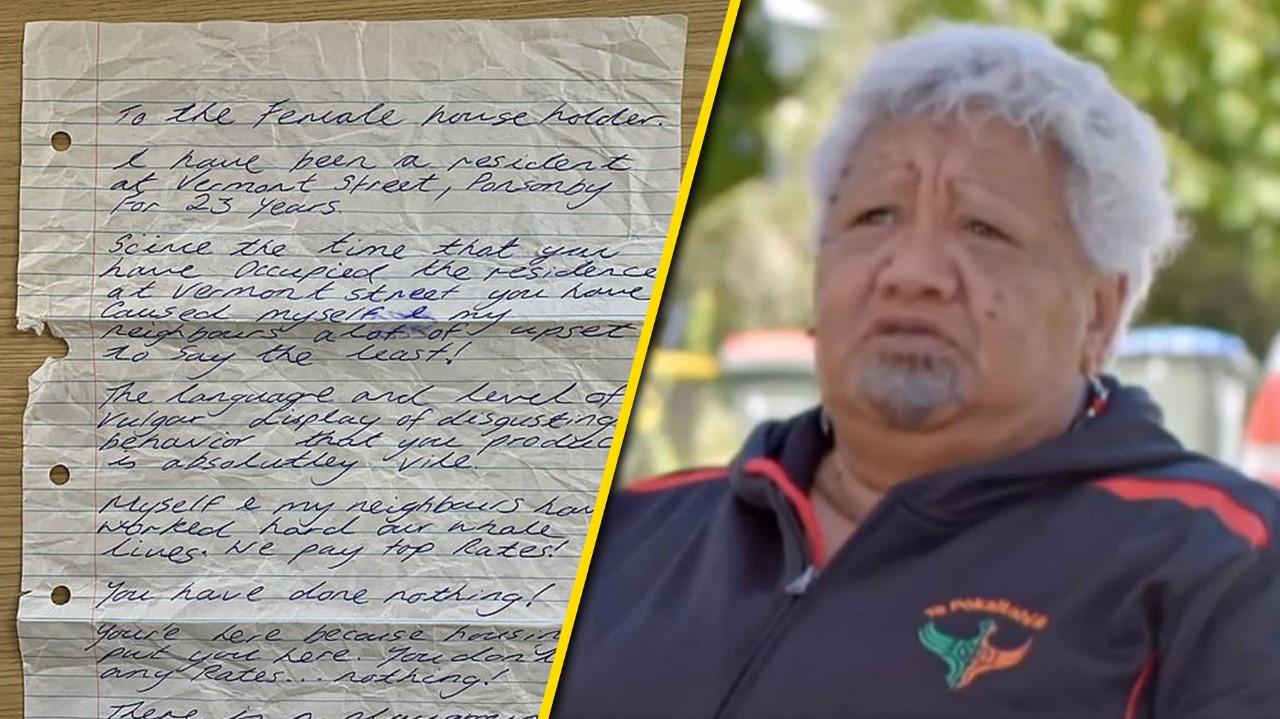 To the Female house holder.
I have been a resident
at Vermont Street, Ponsonby
for 23 years.
Scince the time that you
have Occupied the residence
at Vermont street you have
Caused myself & my
neighbours alot of upset
to say the least!
The language and level of
Vulgar display of disgusting
behavior that you
is absolutley vile.
Myself & my neighbours
worked hard our whole
lives. We pay top Rates!
You have done nothing!
You're here because
put you here. You
any Rates... nothing!
There is a